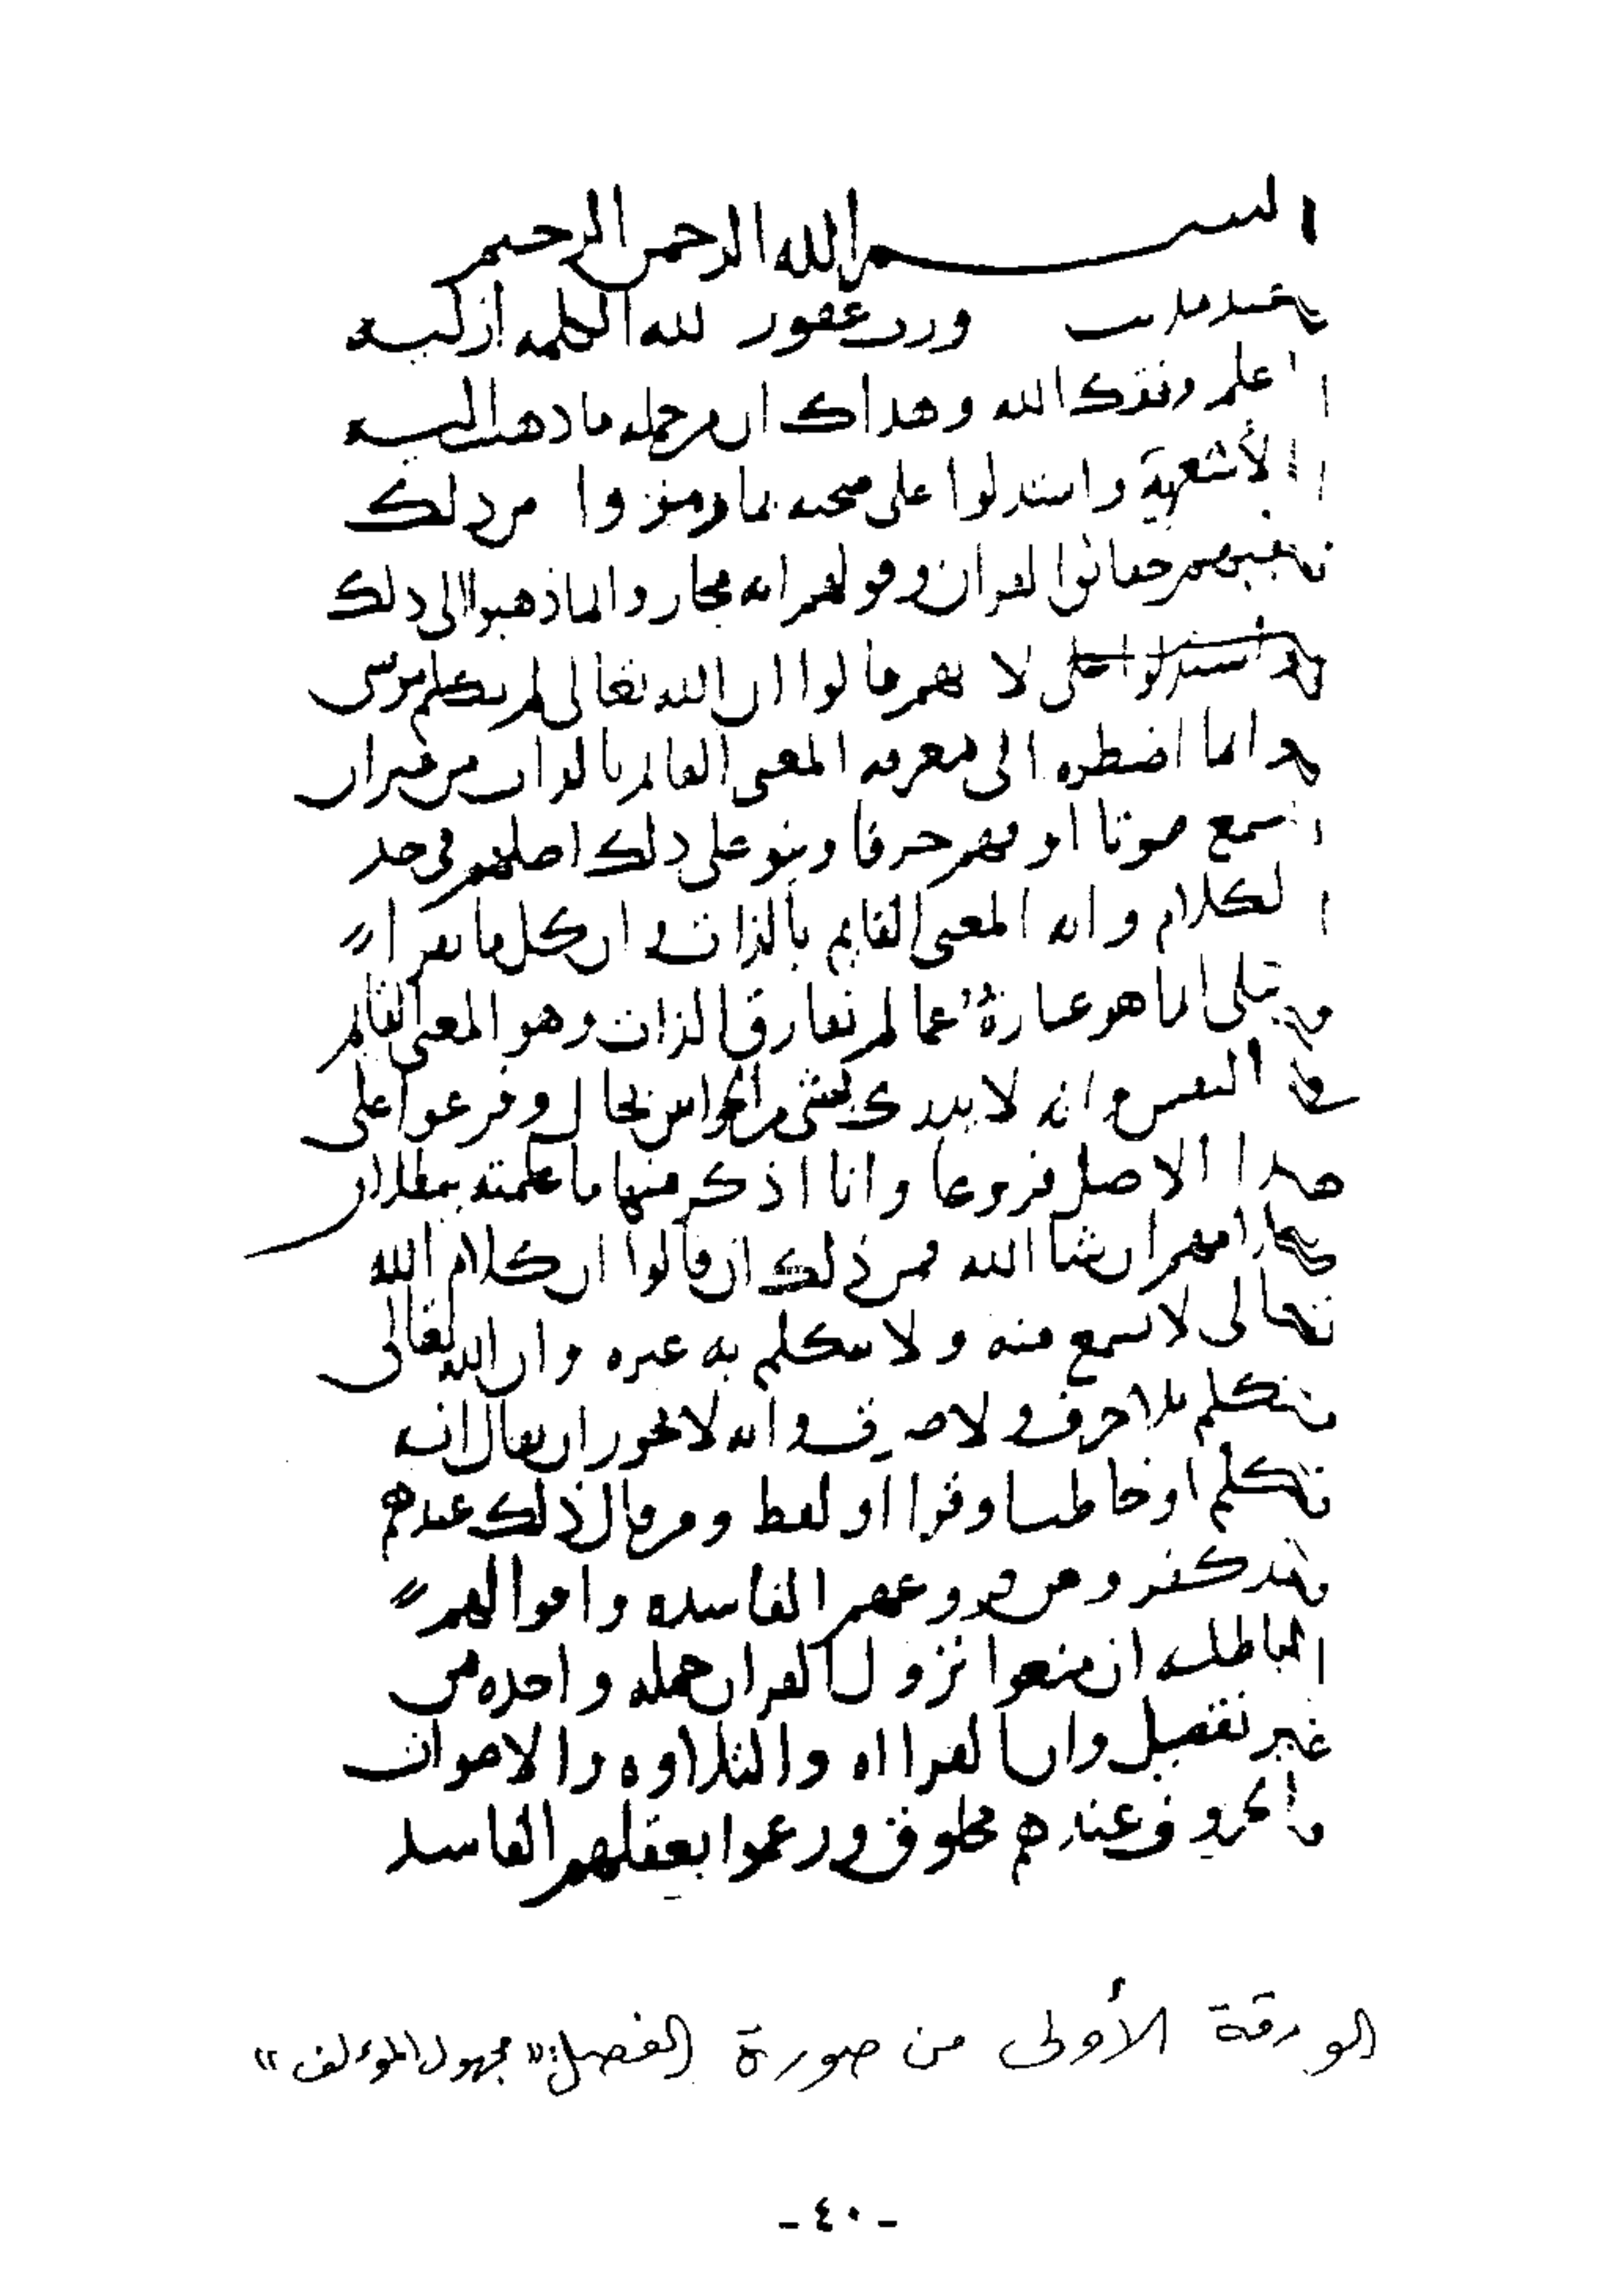 بسم الله الرحمن الرحيم
الكلمه ازليه
اعلم وفقك الله وهداك ان من جمله ما ذهب اليه
الأشعرية واستدلوا على صحته بما من ذلك
القران وقولهم انه مجاز وانما ذهبوا الى ذلك
لانهم قالوا ان الله تعالى لم يكلم موسى
وانما اضطره الى معرفه المعنى القائم بالذات من غير ان
سمع صوتا او فهم حرفا وبنو على ذلك اصلهم في حد
الكلام وانه المعنى القايم بالذات وان كل ما يقرا
ويتلى انما هو عبارة عما لم تفارق الذات وهو المعنى القايم
في النفس وانه لا يدرك بشى من الحواس بحال وفرعوا على
هذا الاصل فروعا وانا اذكر منها ما علمته
ان شا الله فمن ذلك ان قالوا ان كلام الله
تعالى لا يسمع منه ولا يتكلم به غيره وان الله تعالى
متكلم بلا حرف ولا صوت وانه لا يجوز ان يقال انه
تكلم او خاطب او قرا او لفظ ومن قال ذلك عندهم
فقد كفر ومن فروعهم الفاسده واقوالهم
الباطله ان منعوا نزول القران جمله واحده من
غير تفصيل وان القرااه والتلاوه والاصوات
والحروف عندهم مخلوق وزعموا بعقلهم الفاسد
الورقة الأولى من صورة الفصل «مجهول المؤلف»
- ٤٠ -